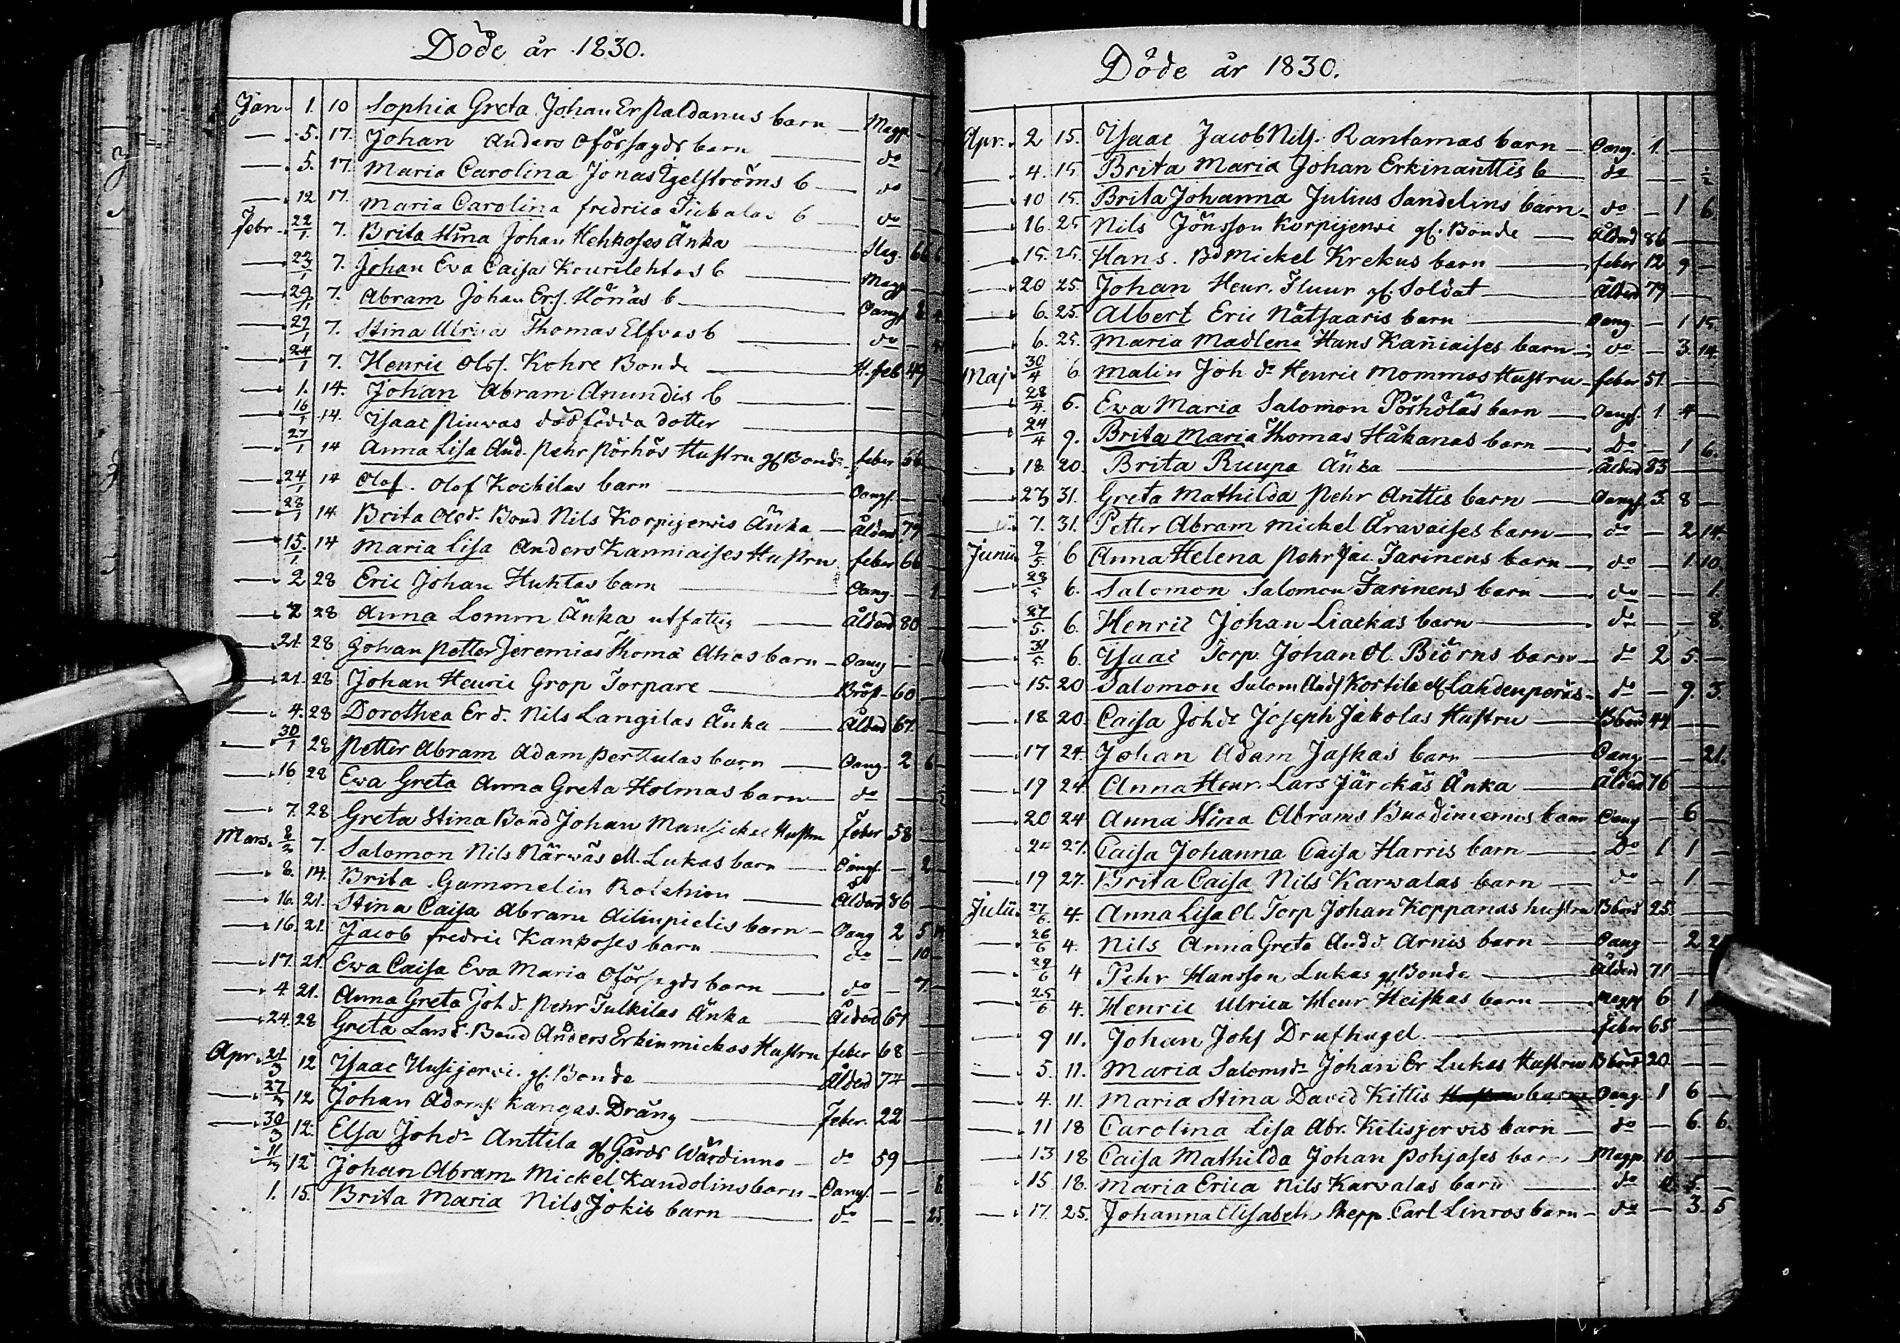 Döde år 1830.
Jan. 1. 10 Sophia Greta Johan Er Paldanus barn Magp. —
— 5. 17. Johan Anders Oförsagds barn do
— 5. 17. Maria Carolina Jonas b do
— 12 17. Maria Carolina fredrica b do
Febr. 22/1 7. Brita Stina Johan Hehkoses Änka 66
— 23/1 7. Johan Eva Caisa Kourilehtos b Magp
— 29/1 7. Abram Johan Ersf. Hönäs b Oangf
— 29/1 7. Stina Ulrica Thomas Elfvas b do
— 24/1 7. Henric Olsf. Kohre Bonde H. feb 49
— 1. 14. Johan Abram Anundis b — —
— 16/1 14. Isaac Pinwas dödfödda dotter —
— 27/1 14 Anna Lisa And. Pehr Pörhös Hustru gf Bond. feber 56
— 24/1 14 Olof. Olof Kockilas barn Oangf. —
— 28/1 14 Brita Olsd. Bond Nils Korpijerwis Änka Ålderd 79
— 15/1 14 Maria Lisa Anders Kanniaises Hustru feber 66
— 2 28 Eric Johan Huktas barn Oang —
— 2 28 Anna Lomm Änka utfattig Ålderd 80
— 21. 28 Johan Petter Jeremias Thoma Ahos barn Oang —
— 21. 28 Johan Henric Grop Torpare Bröst 60
— 4. 28 Dorothea Er d. Nils Langilas Änka Ålderd 67.
— 30/1 28 Petter Abram Adam Perttulas barn Oang. 2 6
— 16 28 Eva Greta Anna Greta Holmas barn do —
— 7. 28 Greta Stina Bond Johan Hustru feber 58
Mars. 2/3 7. Salomon Nils Närwäs el. Lukas barn Oangf. — 2
— 8. 14. Brita Gammelin Rotehion Ålderd 86
— 16. 21. Stina Caisa Abram Ailinpietis barn Oang 2 5
— 16. 21. Jacob fredric Kanposes barn do — 10
— 17. 21. Eva Caisa Eva Maria Oförsagds barn do — 7
— 4 21. Anna Greta Joh d. Pehr Tulkilas Änka Ålderd 67
— 24. 28 Greta Lars d. Bond Anders Erkinmickos Hustru feber 68
Apr. 21/3 12 Isaac Uusijerwi. gf. Bonde Ålderd 74
— 27/3 12 Johan Adamsf Kangas. Dräng Feber. 22
— 30/3 12. Elsa Joh dr Anttila gf Gårds Wärdinna do 59
— 11/3 12 Johan Abram Mickel Kandolins barn Oangf. — — 8
1. 15. Brita Maria Nils Jokis barn do — — 25
Döde år 1830.
Apr. 2 15. Isaac Jacob Nilsf. Rantamas barn Oang. 1. —
— 4. 15 Brita Maria Johan Erkinanttis b do — 1/2
— 10 15. Brita Johanna Julius Sandelins barn do — 1 6
— 16. 25 Nils Jönsson Korpijerwi gf. Bonde Ålderd 86
— 15. 25. Hans. Bd Mickel Krekus barn feber 12 9 —
— 20 25 Johan Henr. Fluur gf. Soldat Ålderd 79
— 6. 25. Albert Eric Nätsaaris barn Oang — 1 15
— 6. 25. Maria Madlena Hans Kaniaises barn do — 3. 14.
Maj 30/4 6 Malin Joh dr Henric Mommos Hustru feber 51.
— 28/4 6. Eva Maria Salomon Pörhöläs barn Oangf. 1 4 —
— 24/4 9. Brita Maria Thomas Håkanas barn do — 1 6.
— 18. 20. Brita Ruupa Änka Ålderd 83
— 23 31. Greta Mathilda Pehr Anttis barn Oangf 3. 8
— 7. 31. Petter Abram Mickel Äravaises barn do — 2 14.
Junii 9/5 6 Anna Helena Pehr Jac. Tarinens barn do — 1. 10.
— 28/5 6. Salomon Salomon Tarinens barn do — — 1.
— 27/5. 6. Henric Johan Liackas barn do — — 8.
— 31/5 6. Isaac Torp. Johan Ol. Biörns barn do 2 5. —
— 15. 20 Salomon Salom Andsf Kortila el Lahdenperäs do — 9. 3.
— 18 20. Caisa Joh dr Joseph Jakolas Hustru 44
— 17 24. Johan Adam Jaskas barn Oang — — 21.
— 19 24 Anna Henr. Lars Järckäs Änka Ålderd 76
— 20 24 Anna Stina Abrams barn Oang — 6 —
— 24 27. Caisa Johanna Caisa Harris barn Do 1 1 —
— 19 27. Brita Caisa Nils Karwalas barn do — 1 —
Julii 27/6 4. Anna Lisa el. Torp Johan Koppanas hustru 25.
— 26/6 4. Nils Anna Greta And d. Arnis barn Oang — 2 2
— 29/6 4 Pehr Hansson Lukas gf Bonde Ålderd 71. —
— 25/6 4. Henric Ulrica Henr Heiskas barn Magp 6 1
— 9 11. Johan Johsf Drufhagel. feber 65
— 5. 11. Maria Saloms dr Johan Er Lukas Hustru 20.
— 4. 11. Maria Stina David Kittis barn Oang. 1 6 —
— 11 18 Carolina Lisa Abr. Kilisjervis barn do — 6. 6.
— 13 18 Caisa Mathilda Johan Pohjoses barn Magp. 10 —
— 15 18. Maria Erica Nils Karwalas barn do 5 —
— 17. 25. Johanna Elisabeth Skepp. Carl Linros barn do — 3. 5